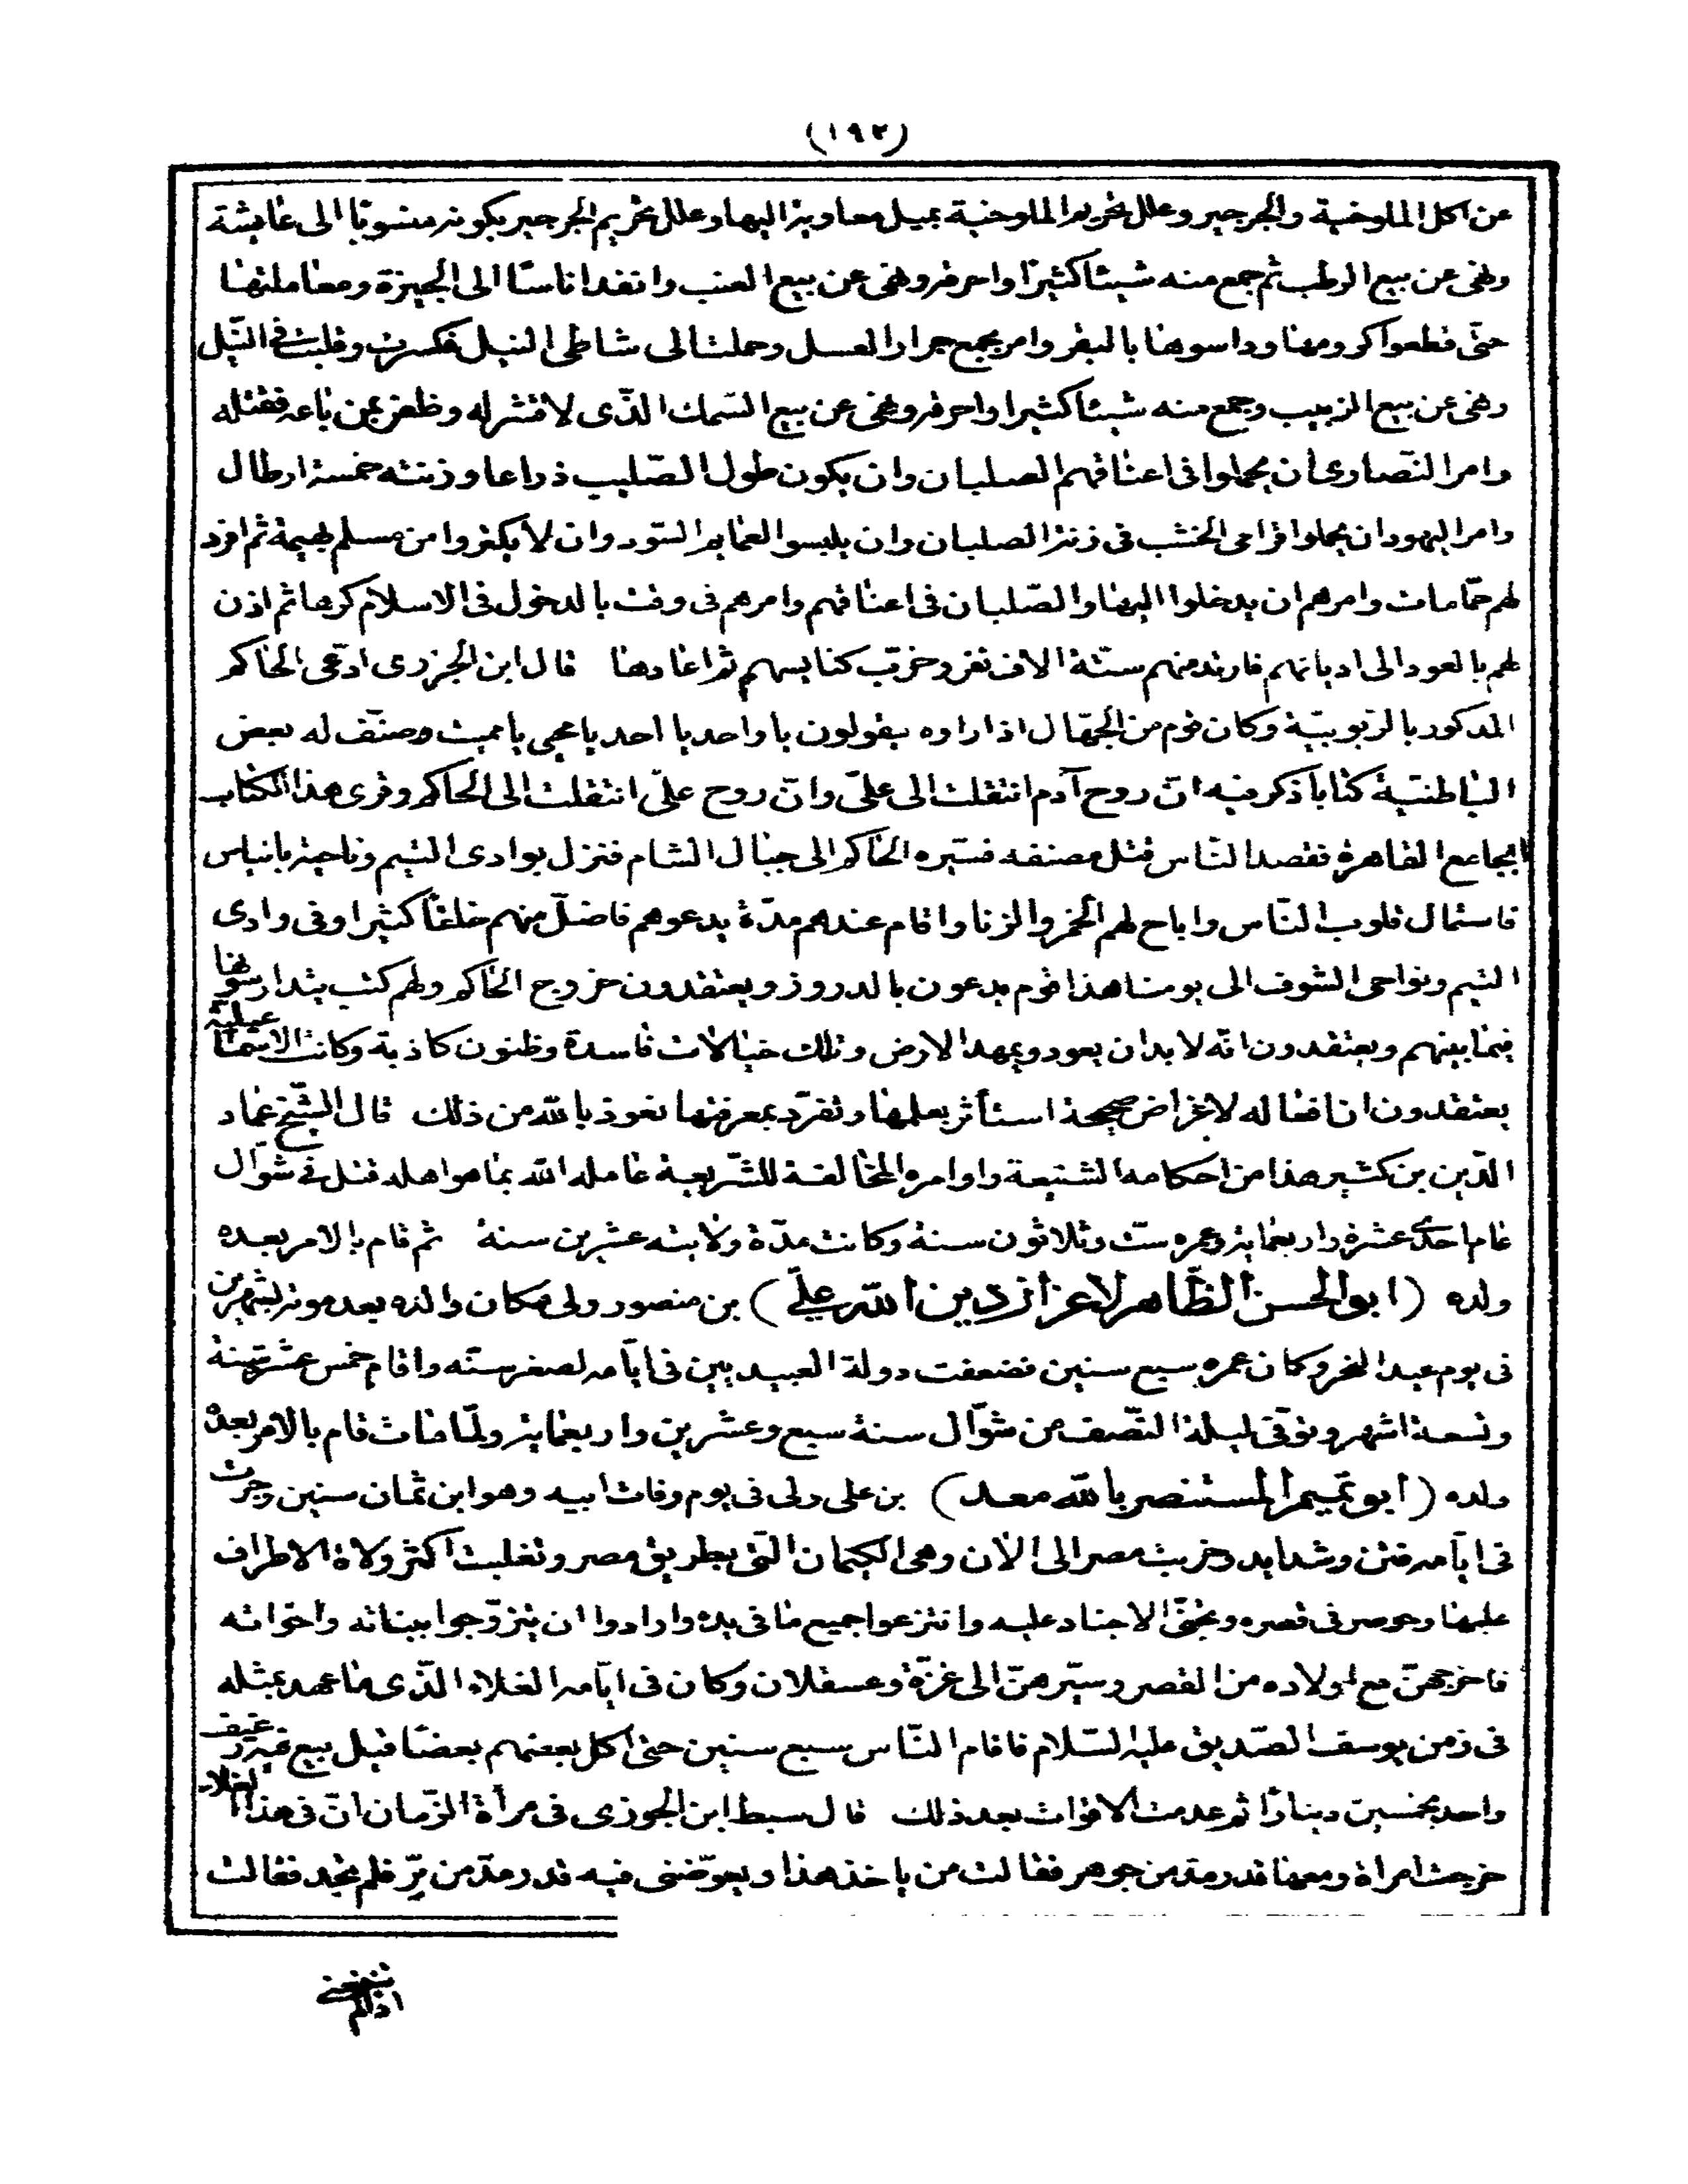 (١٩٢)
عن اكل الملوخية والجرجير وعلل تحريم الملوخية بميل معاوية اليها وعلل تحريم الجرجير بكونه منسوبا الى عايشة
ونهى عن بيع الرطب ثم جمع منه شيئا كثيرا واحرقه ونهى عن بيع العنب وانفد اناسا الى الجيزة ومعاملتها
حتى قطعوا كرومها وداسوها بالبقر وامر بجمع جرار العسل وحملت الى شاطئ النيل فكسرت وقلبت فى النيل
ونهى عن بيع الزبيب وجمع منه شيئا كثيرا واحرقه ونهى عن بيع السمك الذى لا قشر له وظفر بمن باعه فقتله
وامر النصارى ان يحملوا فى اعناقهم الصلبان وان يكون طول الصليب ذراعا وزنته خمسة ارطال
وامر اليهود ان يحملوا قرامى الخشب فى زنة الصلبان وان يلبسوا العمايم السود وان لا يكتروا من مسلم بهيمة ثم افرد
لهم حمامات وامرهم ان يدخلوا اليها والصلبان فى اعناقهم وامرهم فى وقت بالدخول فى الاسلام كرها ثم اذن
لهم بالعود الى اديانهم فارتد منهم ستة الاف نفر وخرب كنايسهم ثم اعادها قال ابن الجزرى ادعى الحاكم
المذكور بالربوبية وكان قوم من الجهال اذا راوه يقولون يا واحد يا احد يا محيى يا مميت وصنف له بعض
الباطنية كتابا ذكر فيه ان روح آدم انتقلت الى على وان روح على انتقلت الى الحاكم وقرى هذا الكتاب
بجامع القاهرة فقصد الناس قتل مصنفه فسيره الحاكم الى جبال الشام فنزل بوادى التيم وناحية بانياس
فاستمال قلوب الناس واباح لهم الخمر والزنا واقام عندهم مدة يدعوهم فاضل منهم خلقا كثيرا وفى وادى
التيم ونواحى الشوف الى يومنا هذا قوم يدعون بالدروز ويعتقدون خروج الحاكم ولهم كتب يتدارسونها
فيما بينهم ويعتقدون انه لا بد ان يعود ويمهد الارض وتلك خيالات فاسدة وظنون كاذبة وكانت الاسماعيلية
يعتقدون ان افعاله لاغراض صحيحة استأثر بعلمها وتفرد بمعرفتها نعوذ بالله من ذلك قال الشيخ عماد
الدين بن كثير هذا من احكامه الشنيعة واوامره المخالفة للشريعة عامله الله بما هو اهله قتل فى شوال
عام احدى عشرة واربعماية وعمره ست وثلاثون سنة وكانت مدة ولايته عشرين سنة ثم قام بالامر بعده
ولده (ابو الحسن الظاهر لاعزاز دين الله على) بن منصور ولى مكان والده بعد موته بشهرين
فى يوم عيد النحر وكان عمره سبع سنين فضعفت دولة العبيديين فى ايامه لصغر سنه واقام خمس عشرة سنة
وتسعة اشهر وتوفى ليلة النصف من شوال سنة سبع وعشرين واربعماية ولما مات قام بالامر بعده
ولده (ابو تميم المستنصر بالله معد) بن على ولى فى يوم وفات ابيه وهو ابن ثمان سنين وجرت
فى ايامه فتن وشدايد وخربت مصر الى الآن وهى الكيمان التى بطريق مصر وتغلبت اكثر ولاة الاطراف
عليها وحوصر فى قصره وتجنى الاجناد عليه وانتزعوا جميع ما فى يده وارادوا ان يتزوجوا ببناته واخواته
فاخرجهن مع اولاده من القصر وسيرهن الى غزة وعسقلان وكان فى ايامه الغلاء الذى ما عهد بمثله
فى زمن يوسف الصديق عليه السلام فاقام الناس سبع سنين حتى اكل بعضهم بعضا قيل بيع رغيف
واحد بخمسين دينارا ثم عدمت الاقوات بعد ذلك قال سبط ابن الجوزى فى مرأة الزمان ان فى هذا الغلاء
خرجت امراة ومعها قدر مد من جوهر فقالت من ياخذ هذا ويعوضنى فيه قدر مد من بر فلم تجد فقالت